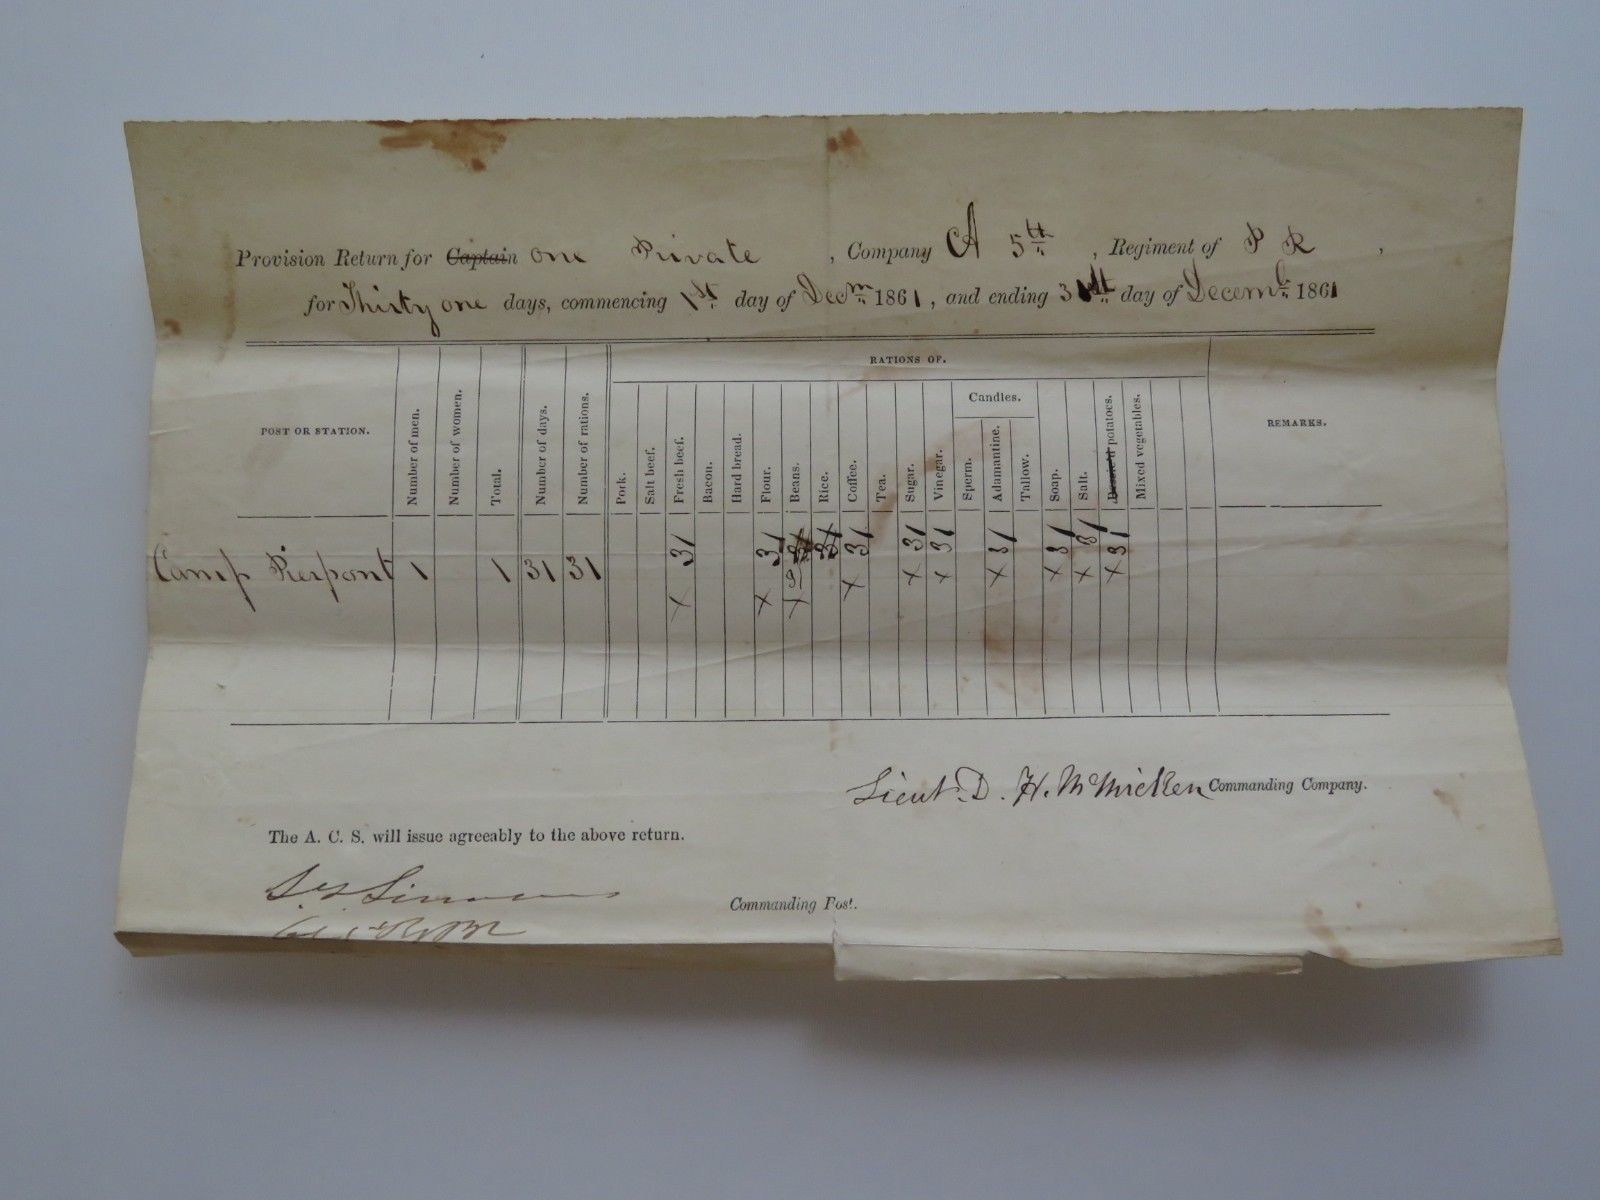 Provision Return for Captain one Private , Company A 5th , Regiment of P R ,
for Thirty one days, commencing 1st day of Decm 1861, and ending 31st day of Decemb 1861
RATIONS OF.
POST OR STATION.
Number of men.
Number of women.
Total.
Number of days.
Number of rations.
Pork.
Salt beef.
Fresh beef.
Bacon.
Hard bread.
Flour.
Beans.
Rice.
Coffee.
Tea.
Sugar.
Vinegar.
Candles.
Sperm.
Adamantine.
Tallow.
Soap.
Salt.
potatoes.
Mixed vegetables.
REMARKS.
Camp Pierpont 1 1 31 31 31 31 31 31 31 31 31 31 31 31
x x x x x x x x x x
Lieut. D. H. McMicken Commanding Company.
The A. C. S. will issue agreeably to the above return.
Simmons
Commanding Post.